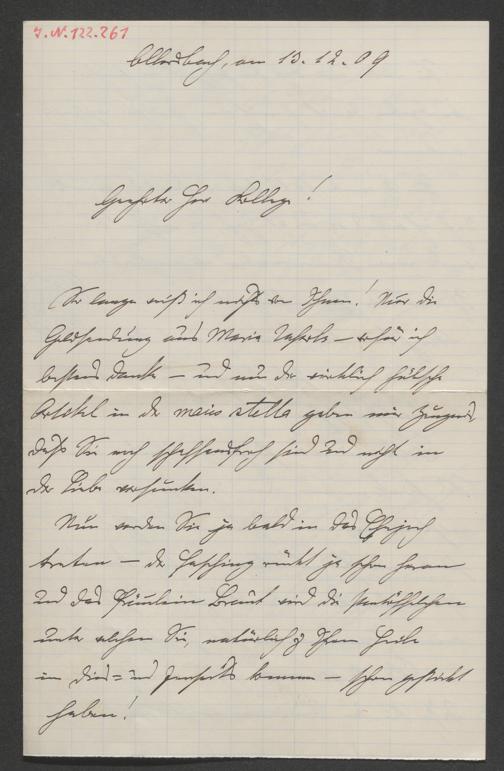 I. N. 122.261
Ollersbach, am 13.12.09
Geehrter Herr Kollege!
So lange weiß ich nichts von Ihnen! Nur die
Geldsendung aus Maria Taferl – wofür ich
bestens danke – und nun der wirklich hübsche
Artikel in der maris stella geben mir Zeugnis
daß Sie noch schaffensfroh sind und nicht in
der Liebe versunken.
Nun werden Sie ja bald in das Ehejoch
treten – der Fasching rückt ja schon heran
und das Fräulein Braut wird die
unter welchen Sie, natürlich zu Ihrem Heile
im Dies= und Jenseits kommen – schon gestickt
haben!